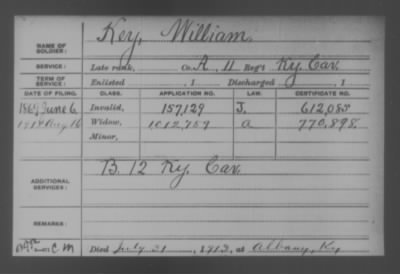 Key, William.
NAME OF SOLDIER:
SERVICE: Late rank, Co. A, 11 Reg't Ky. Cav.
TERM OF SERVICE: Enlisted , 1 Discharged , 1
DATE OF FILING. CLASS. APPLICATION NO. LAW. CERTIFICATE NO.
1869 June 6 Invalid, 157,129 J. 612,085
Aug 16 Widow, 1012,759 a 770,898.
Minor,
ADDITIONAL SERVICES: B. 12 Ky. Cav.
REMARKS:
C. M
Died July 31, 1913, at Albany, Ky